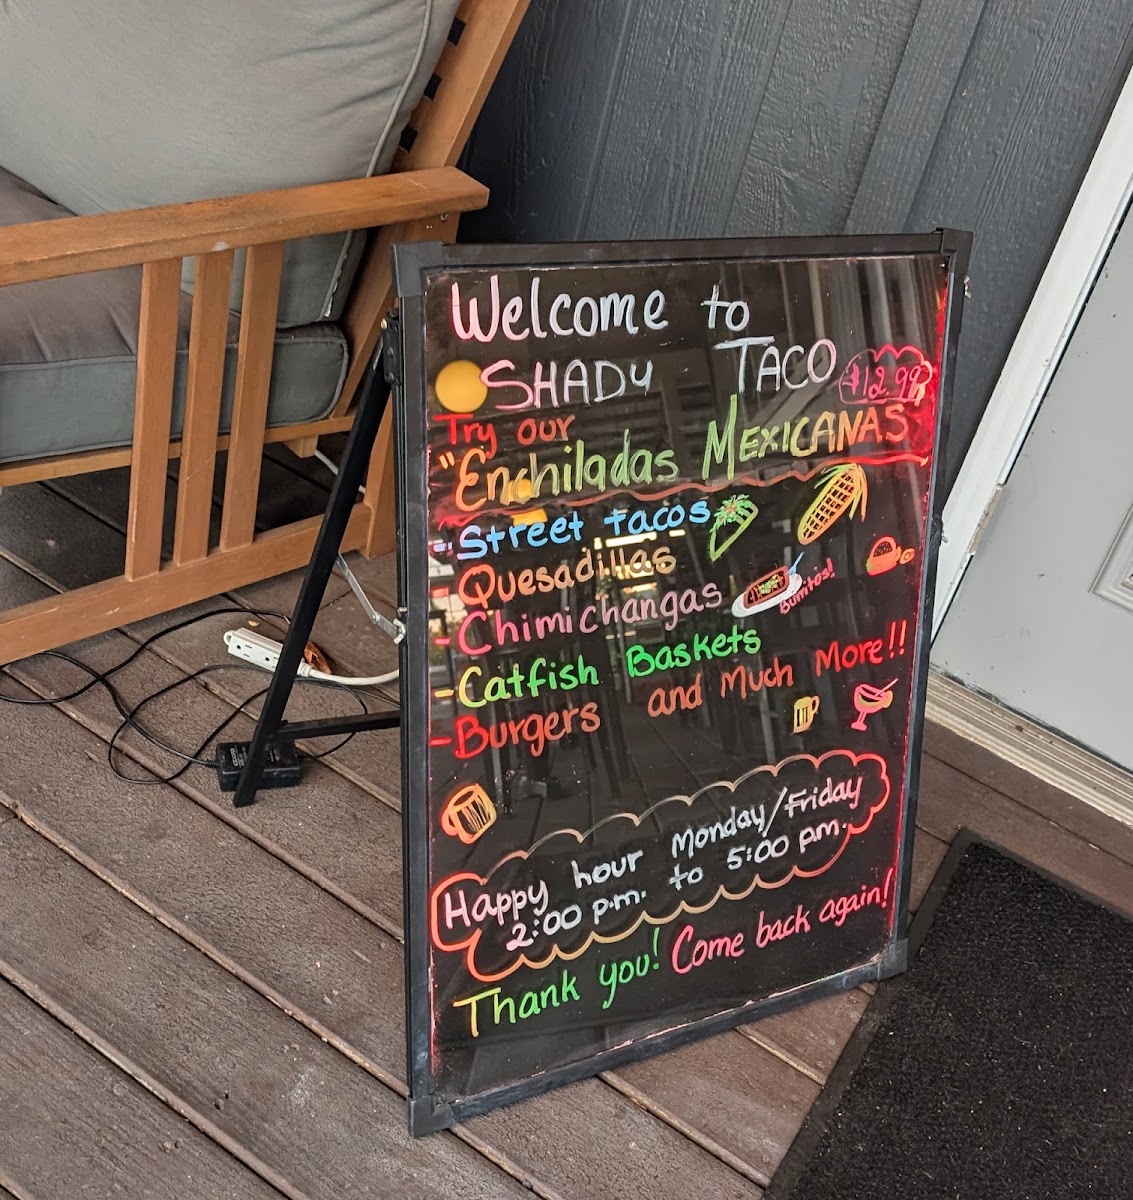 Welcome to
SHADY TACO
$12.99
Try our
"Enchiladas MEXICANAS
- Street tacos
Quesadillas
- Chimichangas
Burritos!
- Catfish Baskets
- Burgers and Much More!!
Happy hour Monday/Friday
2:00 p.m. to 5:00 p.m.
Thank you! Come back again!